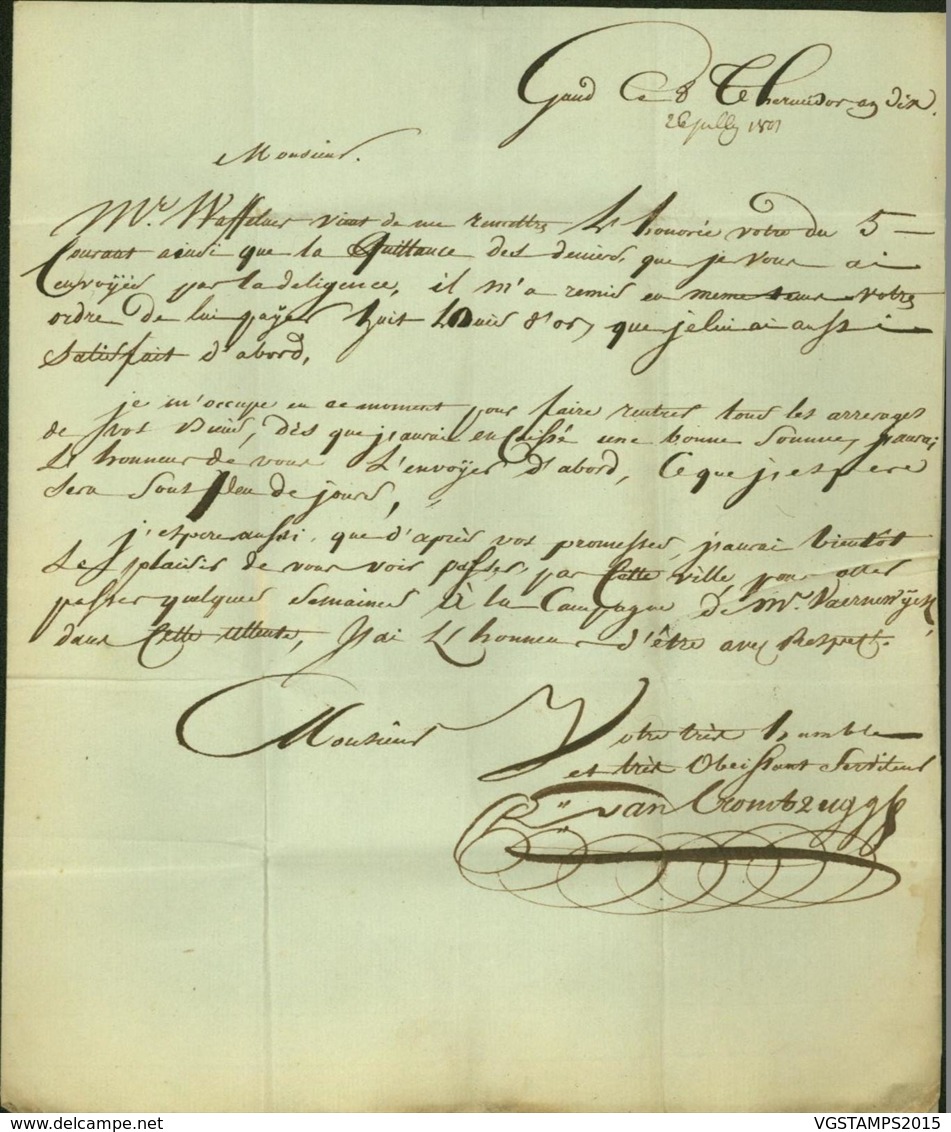 Gand Ce 8 Thermidor an dix.
26 july 1801
Monsieur.
Mr. Waffelaer vient de me remettre L'honorée votre du 5
Courant ainsi que la Quittance des deniers, que je vous ai
envoyés par la deligence, il m'a remis en meme tems votre
ordre de lui payer huit Louis d'or, que je lui ai aussi
satisfait d'abord,
je m'occupe en ce moment pour faire rentrer tous les arrerages
de vos biens, dès que j'aurai encaissé une bonne somme, j'aurai
L'honneur de vous L'envoyer d'abord, Ce que j'espere
sera sous peu de jours,
j'espere aussi, que d'après vos promesses, j'aurai bientot
Le plaisir de vous voir passer, par Cette ville, pour aller
passer quelques semaines à la Campagne de Mr. Vaernewÿck
dans Cette attente, J'ai L'honneur d'être avec Respect.
Monsieur Votre très humble
et très Obeissant Serviteur
van Crombrugghe
VGSTAMPS2015